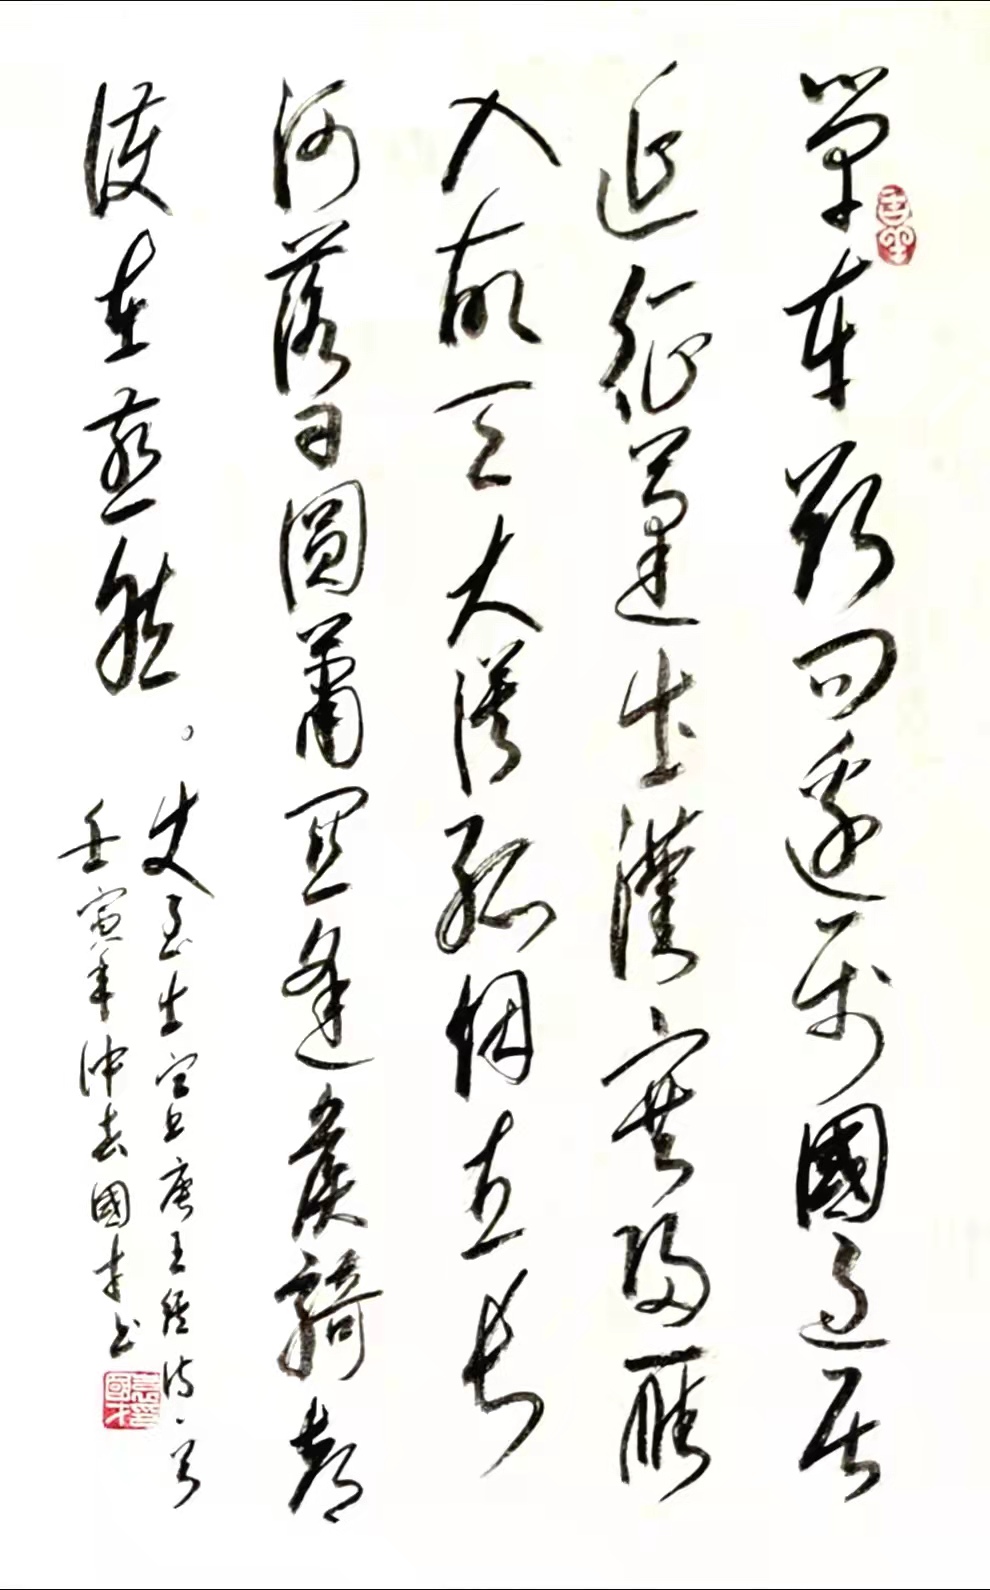 單車欲問邊屬國過居
延征蓬出漢塞歸雁
入胡天大漠孤烟直長
河落日圓蕭關逢候騎都
護在燕然。
使至出塞上唐王維詩一首
壬寅年仲春國才書